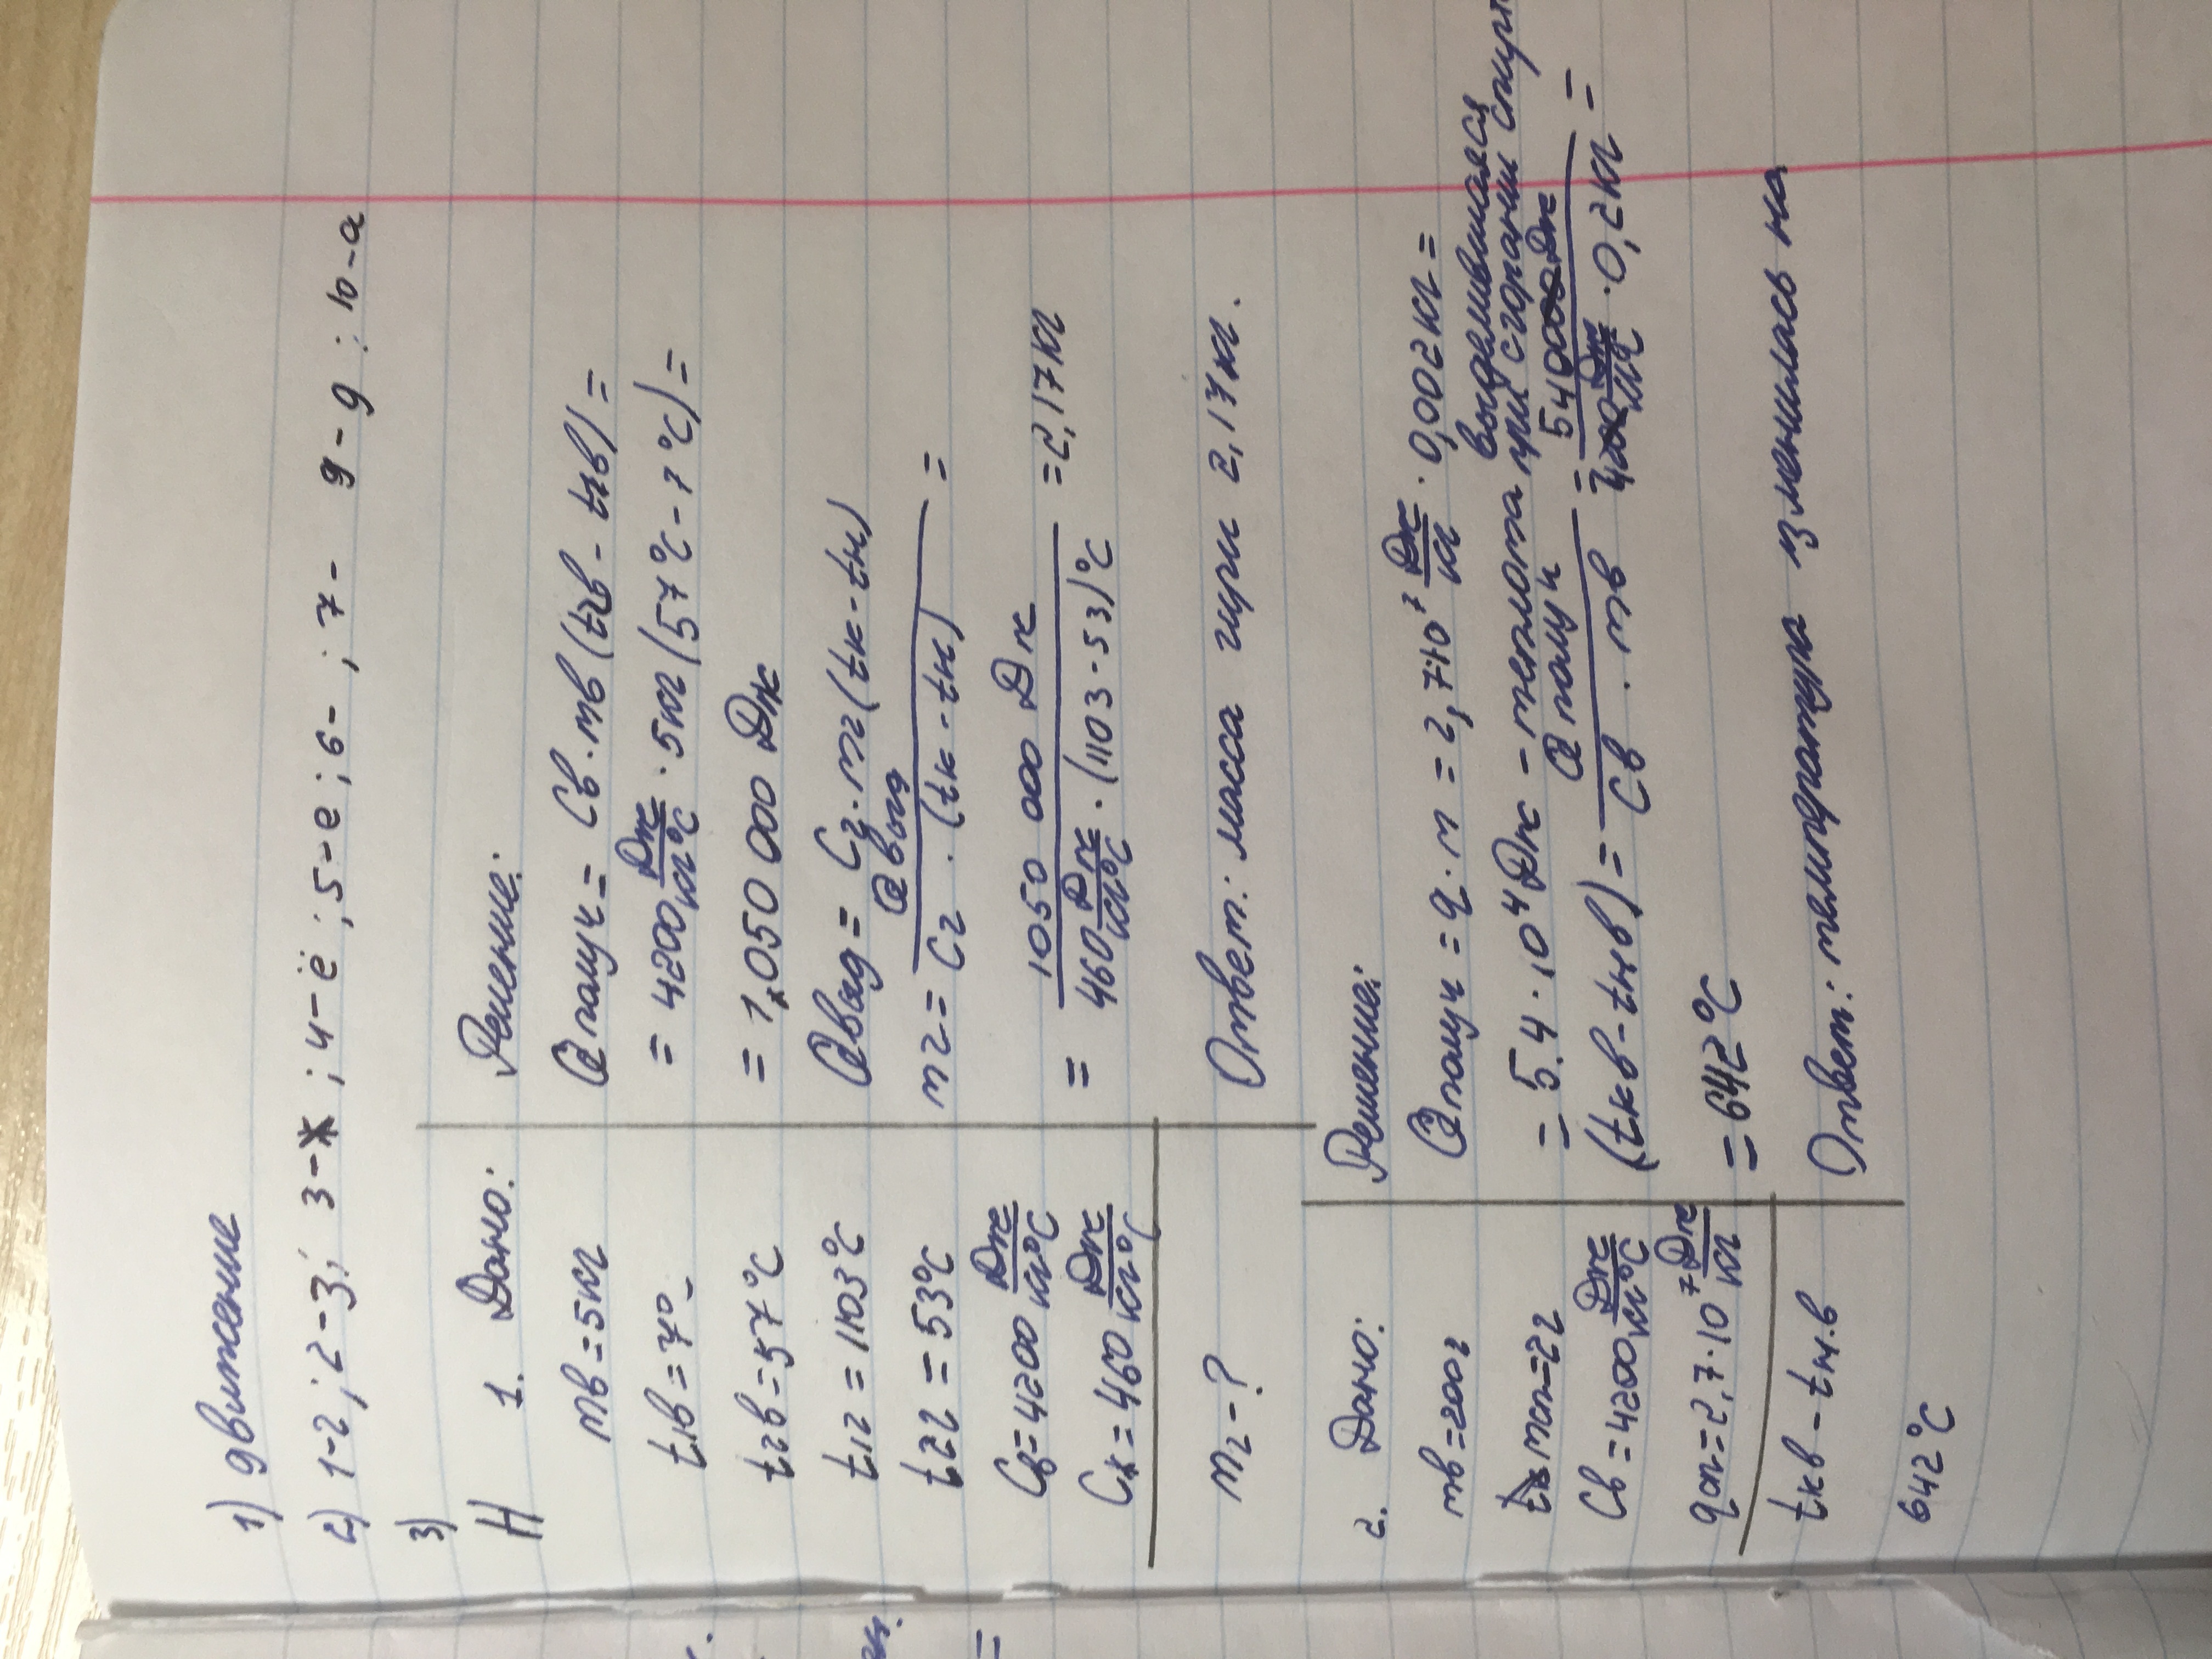 1) движение
2) 1-2; 2-3; 3-ж; 4-ё; 5-е; 6- ; 7- 9-д; 10-а
3)
Н 1. Дано:
mв = 5кг
t1в = 7°
t2в = 57°C
t1г = 1103°C
t2г = 53°C
Cв = 4200 Дж/кг°C
Cж = 460 Дж/кг°C
mг - ?
Решение:
Qполуч = Cв · mв (t2в - t1в) =
= 4200 Дж/кг°C · 5кг (57°C - 7°C) =
= 1,050 000 Дж
Qвыд = Cг · mг (tк - tн)
mг = Qвыд / Cг · (tк - tн) =
= 1050 000 Дж / 460 Дж/кг°C · (1103 - 53)°C = 2,17кг
Ответ: масса гири 2,17кг.
2. Дано:
mв = 200г
mсп = 2г
Cв = 4200 Дж/кг°C
qсп = 2,7·10⁷ Дж/кг
tкв - tн.в
642°C
Решение:
Qполуч = q · m = 2,7·10⁷ Дж/кг · 0,002кг =
= 5.4 · 10⁴ Дж - теплота выделившаяся при сгорании
(tкв - tнв) = Qполуч / Cв · mв = 54000 Дж / 4200 Дж/кг · 0,2кг =
= 642°C
Ответ: температура изменилась на